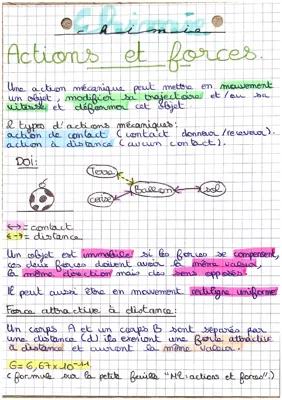 Chimie
Chimie
Actions et forces.
Une action mécanique peut mettre en mouvement
un objet, modifier sa trajectoire et/ou sa
vitesse et déformer cet objet
2 types d'actions mécaniques:
action de contact (contact donneur/receveur).
action à distance (aucun contact).
DOI:
Terre
Ballon
sol
↔ = contact
↔ = distance
Un objet est immobile si les forces se compensent,
ces deux forces doivent avoir la même valeur,
la même direction mais des sens opposés.
Il peut aussi être en mouvement rectiligne uniforme
Force attractive à distance:
Un corps A et un corps B sont séparés par
une distance (d) ils exercent une force attractive
à distance et auront la même valeur.
G = 6,67 x 10⁻¹¹
(formule sur la petite feuille "N2: actions et forces".)